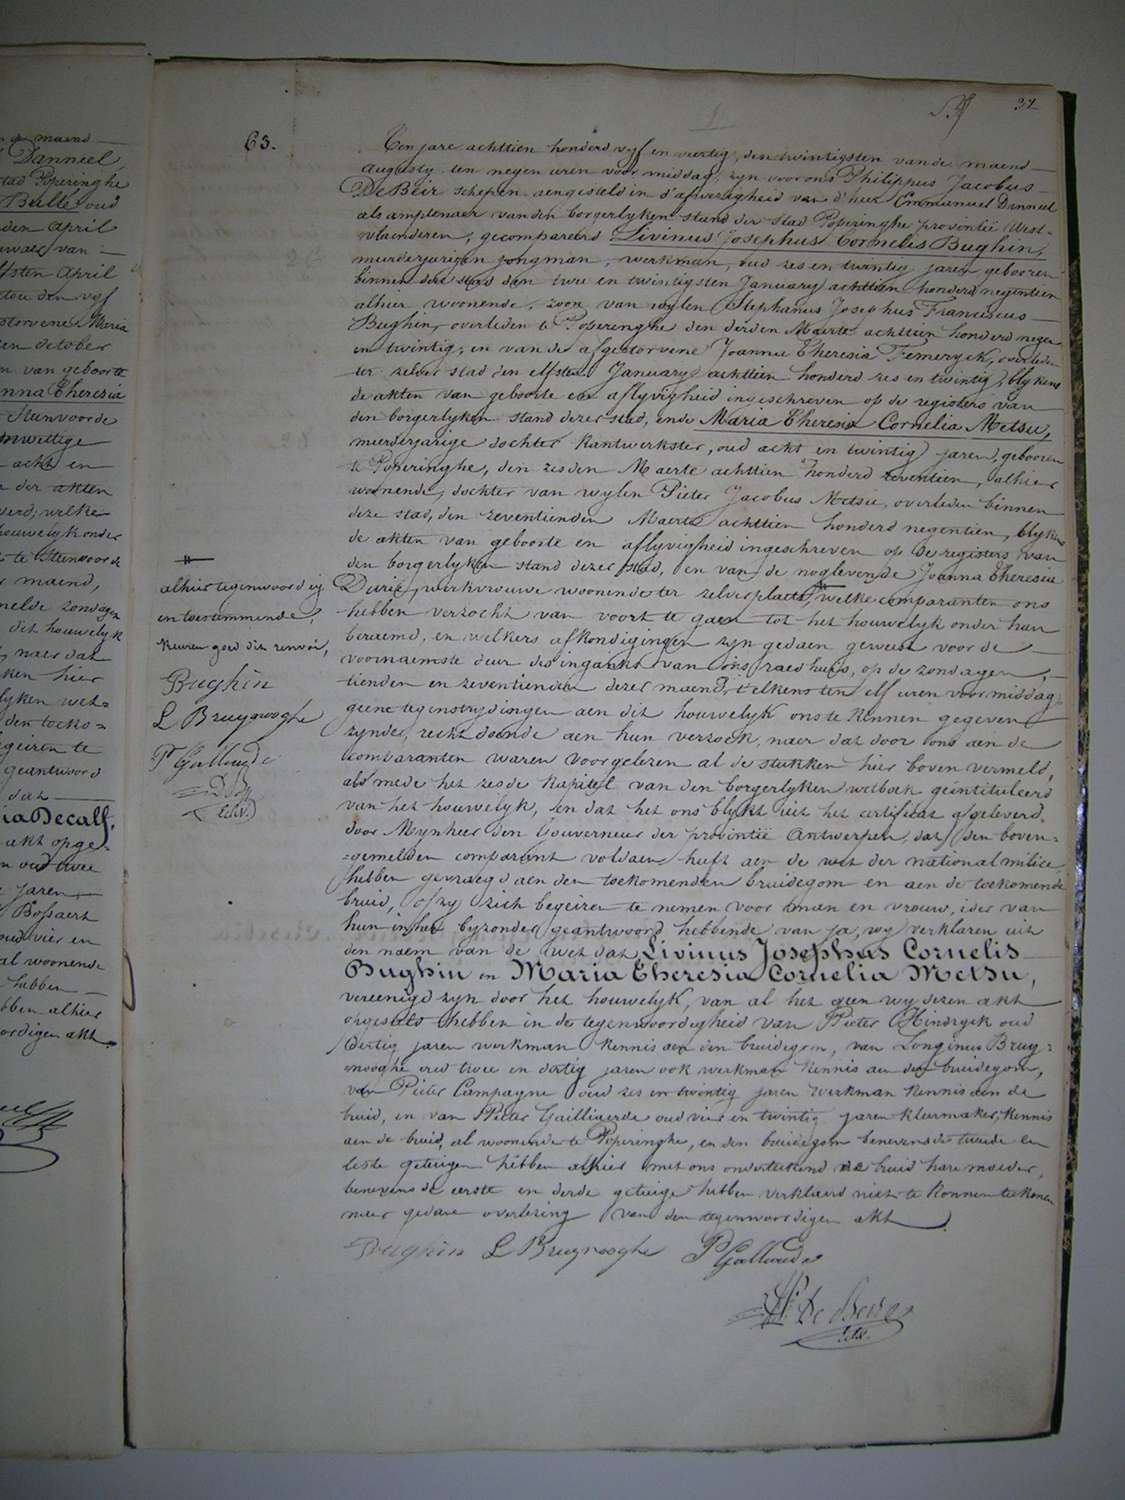 maend
Danneel
stad Poperinghe
Balle oud
den April
van
fsten April
tou den vyf
storvene Maria
en October
n van geboorte
anna Theresia
Steenvoorde
nwettige
acht en
n der akten
verd, welke
houwelyk onder
te Steenvoorde
maend,
melde zondagen
dit houwelyk
naer dat
ken hier
lyken wet-
den toeko-
geiren te
geantwoord
dat
ia Decalf,
akt opge-
n oud twee
jaren
Bossaert
oud vier en
al woonende
hebben
bben alhier
oordigen akt.
37
63.
Ten jare achttien honderd vyf en veertig, den twintigsten van de maend
Augusty ten negen uren voor middag, zyn voor ons Philippus Jacobus
De Beir schepen aengesteld in d'afwezigheid van d'heer Emmanuel Danneel
als amptenaer van den borgerlyken stand der stad Poperinghe provintië West-
vlaenderen, gecompareerd Livinus Josephus Cornelis Bughin,
meerderjarigen jongman, werkman, oud zes en twintig jaren gebooren
binnen deze stad den twee en twintigsten January achttien honderd negentien
alhier woonende, zoon van wylen Stephanus Josephus Franciscus
Bughin, overleden te Poperinghe den derden Maerte achttien honderd negen
en twintig, en van de afgestorvene Joanna Theresia Femeryck, overleden
ter zelver stad den elfsten January achttien honderd zes en twintig, blykens
de akten van geboorte en aflyvigheid ingeschreven op de registers van
den borgerlyken stand dezer stad, ende Maria Theresia Cornelia Metsu,
meerderjarige dochter kantwerkster, oud acht en twintig jaren, gebooren
te Poperinghe, den zesden Maerte achttien honderd zeventien, alhier
woonende, dochter van wylen Pieter Jacobus Metsu, overleden binnen
deze stad, den zeventienden Maerte achttien honderd negentien, blykens
de akten van geboorte en aflyvigheid ingeschreven op de registers van
den borgerlyken stand dezer stad, en van de noglevende Joanna Theresia
werkvrouwe woonende ter zelver plaets, welke comparanten ons
hebben verzocht van voort te gaen tot het houwelyk onder hun
beraemd, en welkers afkondigingen zyn gedaen geweest voor de
voornaemste deur des ingankt van ons raedhuis, op de zondagen,
tienden en zeventienden dezer maend, t'elkens ten elf uren voor middag
geene tegenstrydingen aen dit houwelyk ons te kennen gegeven
zynde, recht doende aen hun verzoek, naer dat door ons aen de
comparanten waren voorgelezen al de stukken hier boven vermeld,
als mede het zesde kapittel van den borgerlyken wetboek geintituleerd
van het houwelyk, en dat het ons blykt uit het certificat afgeleverd
door Mynheer den Gouverneur der provintië Antwerpen, dat den boven-
=gemelden comparant voldaen heeft aen de wet der nationaal milice
hebben gevraegd aen den toekomenden bruidegom en aen de toekomende
bruid, of zy zich begeiren te nemen voor man en vrouw, ider van
hun in het byzonder geantwoord hebbende van ja, wy verklaren uit
den naem van de wet dat Livinus Josephus Cornelis
Bughin en Maria Theresia Cornelia Metsu,
vereenigd zyn door het houwelyk, van al het geen wy dezen akt
opgesteld hebben in de tegenwoordigheid van Pieter Hindryck oud
dertig jaren werkman kennis aen den bruidegom, van Longinus Bruy=
nooghe oud twee en dertig jaren ook werkman kennis aen den bruidegom,
van Pieter Campagne oud zes en twintig jaren werkman kennis aen de
bruid, en van Pieter Gailliaerde oud vier en twintig jaren kleermaker, kennis
aen de bruid, al woonende te Poperinghe, en den bruidegom benevens de tweede en
leste getuigen hebben alhier met ons onderteekend de bruid hare moeder,
benevens de eerste en derde getuige hebben verklaerd niet te konnen teekenen
naer gedaene overlezing van den tegenwoordigen akt.
alhier tegenwoordig
en toestemmende,
keuren goed dit renvoi,
Bughin
L Bruynooghe
P Gailliaerde
D.B.
Sch.
Bughin L Bruynooghe P Gailliaerde
Ph. De Beir
Sch.